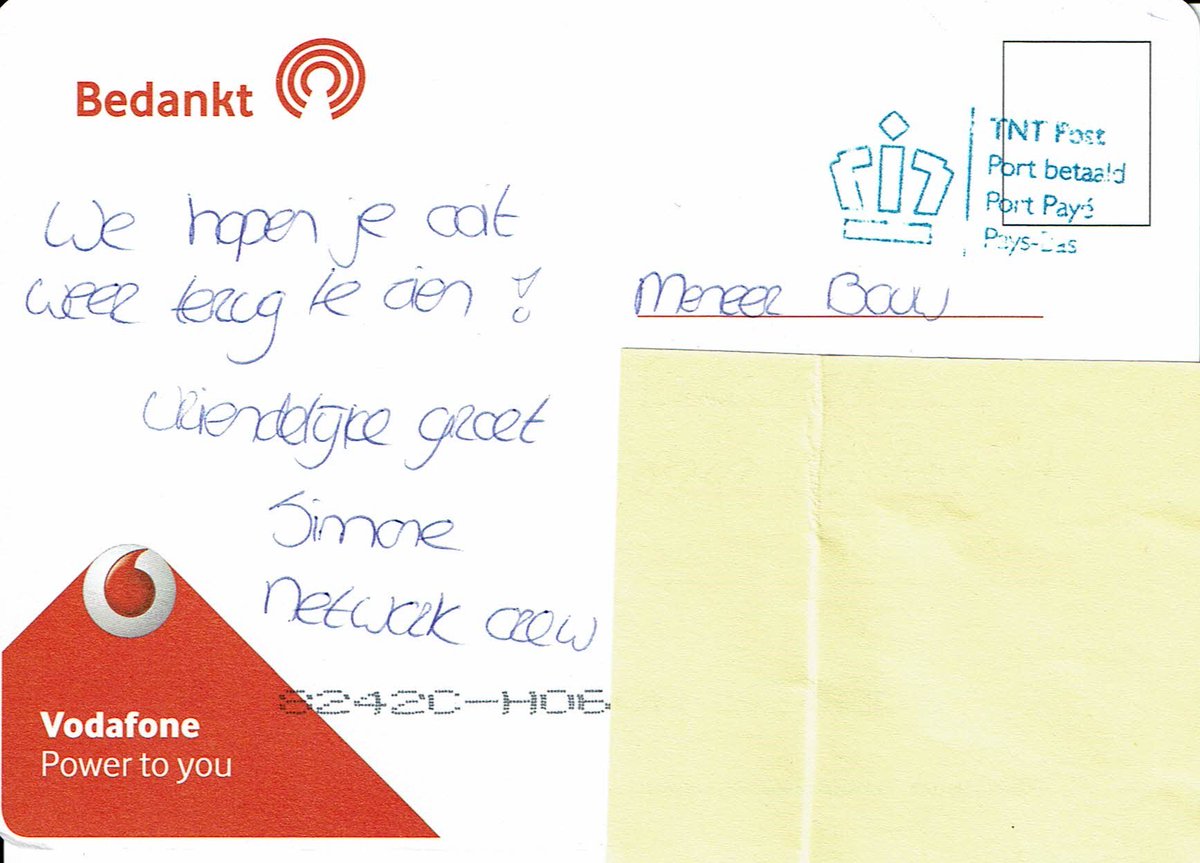 Bedankt
We hopen je ooit
weer terug te zien!
Vriendelijke groet
Simone
Netwerk crew
Vodafone
Power to you
TNT Post
Port betaald
Port Payé
Pays-Bas
Meneer Bouw